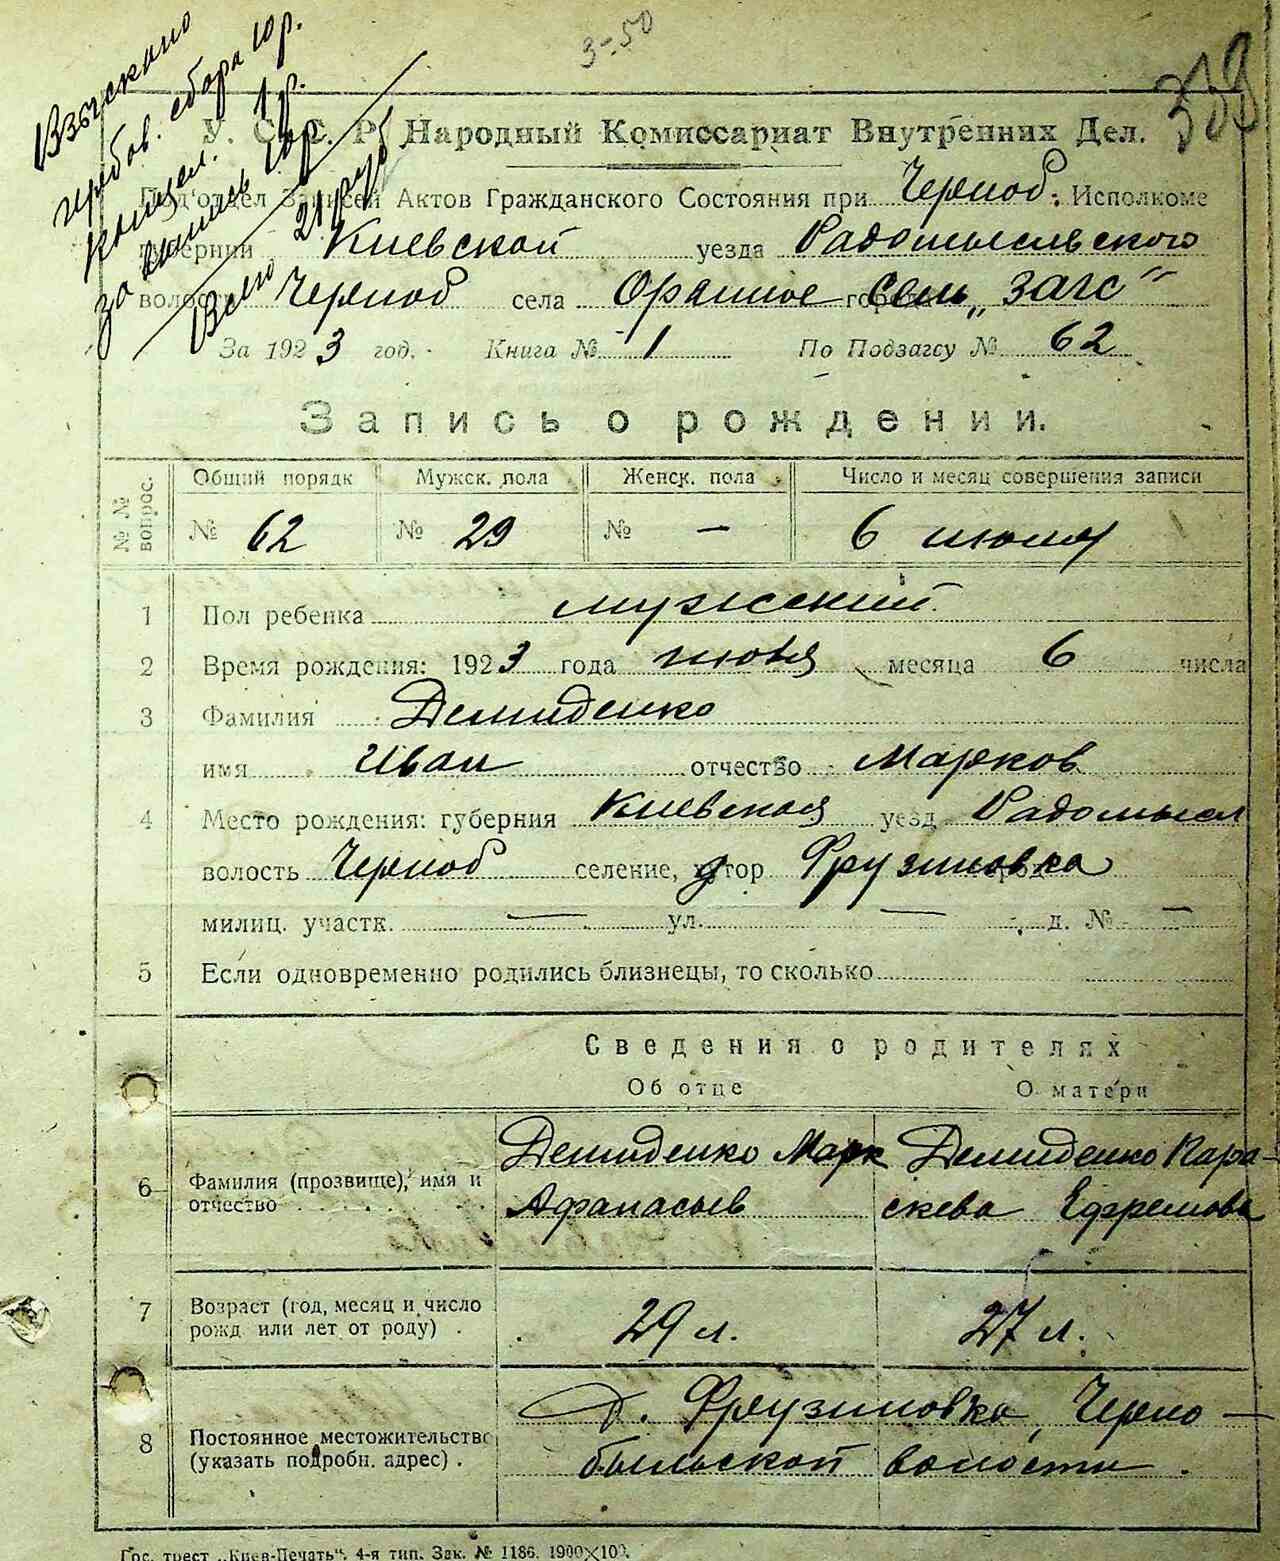 3-50
339
Взыскано
гербов. сбора 10 р.
канцел. 1 р.
за запись 10 р.
Всего 21 руб
У. С. С. Р. Народный Комиссариат Внутренних Дел.
Под'отдел Записей Актов Гражданского Состояния при Черноб. Исполкоме
губернии Киевской уезда Радомысльского
волости Черноб села Оранное город сель „загс"
За 1923 год. Книга № 1 По Подзагсу № 62
Запись о рождении.
№№ вопрос. Общий порядк Мужск. пола Женск. пола Число и месяц совершения записи
№ 62 № 29 № — 6 июля
1 Пол ребенка мужеский
2 Время рождения: 1923 года июня месяца 6 числа
3 Фамилия Демиденко
имя Иван отчество Марков
4 Место рождения: губерния Киевская уезд Радомысл
волость Черноб селение, хутор д Фрузиновка
милиц. участк. — ул. — д. № —
5 Если одновременно родились близнецы, то сколько
Сведения о родителях
Об отце О матери
6 Фамилия (прозвище), имя и отчество Демиденко Марк Демиденко Пара-
Афанасьев скева Ефремова
7 Возраст (год, месяц и число
рожд или лет от роду) . 29 л. 27 л.
8 Постоянное местожительство
(указать подробн. адрес) . Д. Фрузиновка, Черно-
быльской волости.
Гос. трест „Киев-Печать“. 4-я тип. Зак. № 1186. 1900×100.